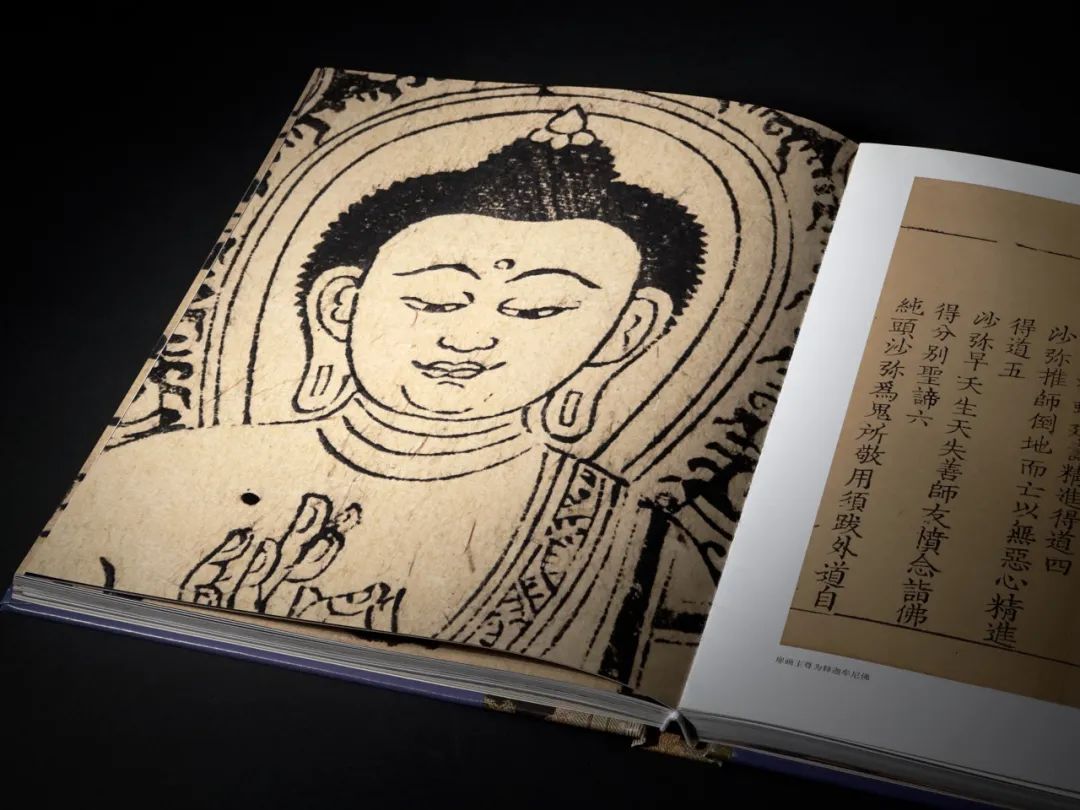 精進得道四
沙弥推師倒地而亡以無惡心精進
得道五
沙弥早夭生天失善師友憤念詣佛
得分別聖諦六
純頭沙弥爲鬼所敬用須跋外道自
扉画主尊为释迦牟尼佛